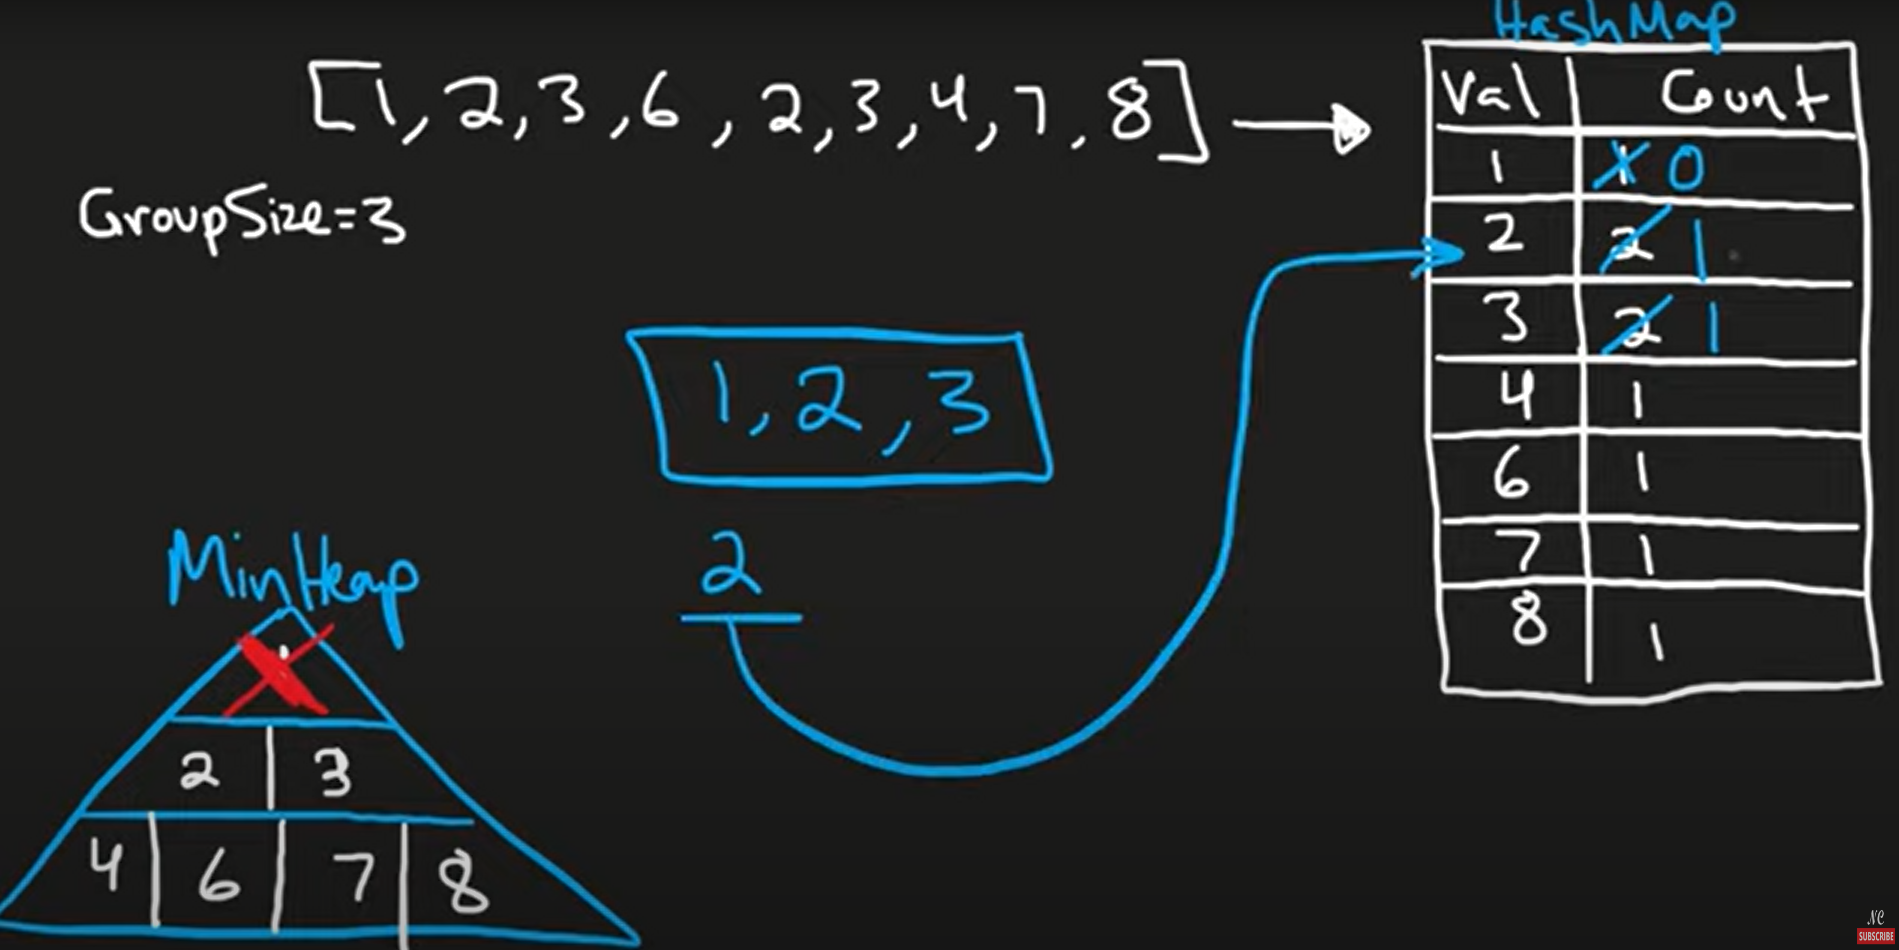 HashMap
[1, 2, 3, 6, 2, 3, 4, 7, 8]
GroupSize=3
Val Count
1 1 0
2 2 1
3 2 1
4 1
6 1
7 1
8 1
1, 2, 3
2
MinHeap
2 3
4 6 7 8
NC
SUBSCRIBE